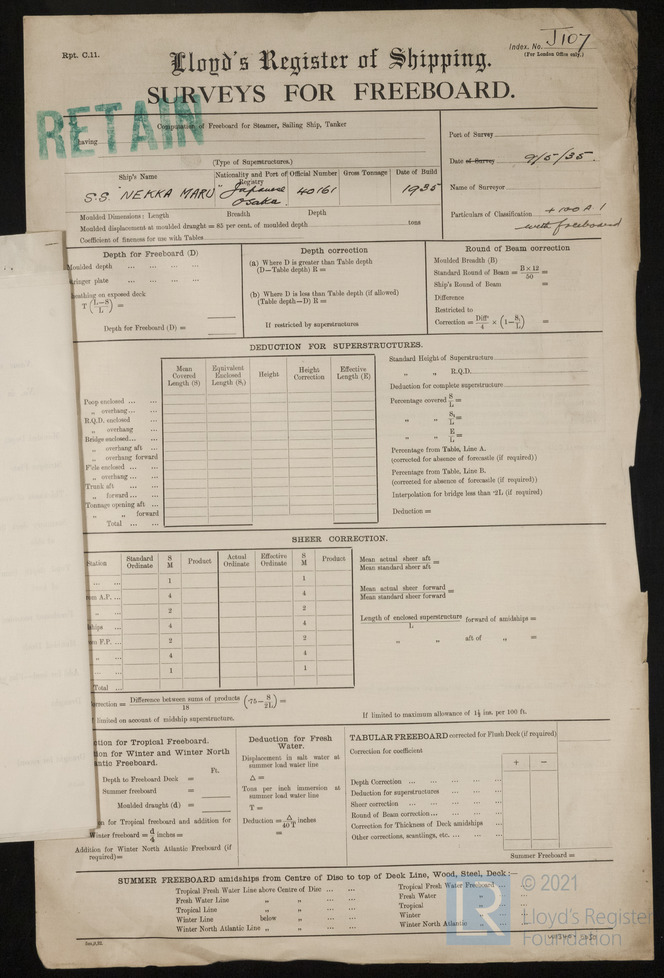 Rpt. C.11.
Index. No. J107
(For London Office only.)
Lloyd's Register of Shipping.
SURVEYS FOR FREEBOARD.
RETAIN
Computation of Freeboard for Steamer, Sailing Ship, Tanker
having
(Type of Superstructures.)
Port of Survey
Date of Survey 9/5/35.
Name of Surveyor
Particulars of Classification +100A1
with freeboard
Ship's Name
Nationality and Port of Registry
Official Number
Gross Tonnage
Date of Build
S.S. "NEKKA MARU"
Japanese
Osaka.
40161
1935
Moulded Dimensions: Length Breadth Depth
Moulded displacement at moulded draught = 85 per cent. of moulded depth tons
Coefficient of fineness for use with Tables
Depth for Freeboard (D)
Moulded depth ... ... ... =
ringer plate ... ... =
heathing on exposed deck
T (L-S/L) =
Depth for Freeboard (D) =
Depth correction
(a) Where D is greater than Table depth
(D—Table depth) R =
(b) Where D is less than Table depth (if allowed)
(Table depth—D) R =
If restricted by superstructures
Round of Beam correction
Moulded Breadth (B)
Standard Round of Beam = B × 12 / 50 =
Ship's Round of Beam =
Difference
Restricted to
Correction = Diffce/4 × (1 - S₁/L) =
DEDUCTION FOR SUPERSTRUCTURES.
Mean Covered Length (S)
Equivalent Enclosed Length (S₁)
Height
Height Correction
Effective Length (E)
Poop enclosed ... ...
„ overhang ... ...
R.Q.D. enclosed ...
„ overhang ...
Bridge enclosed... ...
„ overhang aft ...
„ overhang forward
F'cle enclosed ... ...
„ overhang ... ...
Trunk aft ... ...
„ forward ... ...
Tonnage opening aft ...
„ „ forward
Total ... ...
Standard Height of Superstructure
„ „ R.Q.D.
Deduction for complete superstructure
Percentage covered S/L =
„ „ S₁/L =
„ „ E/L =
Percentage from Table, Line A.
(corrected for absence of forecastle (if required))
Percentage from Table, Line B.
(corrected for absence of forecastle (if required))
Interpolation for bridge less than ·2L (if required)
Deduction =
SHEER CORRECTION.
Station
Standard Ordinate
S M
Product
Actual Ordinate
Effective Ordinate
S M
Product
... ... 1 1
A.P. ... 4 4
„ ... 2 2
ships ... 4 4
F.P. ... 2 2
„ ... 4 4
... ... 1 1
Total ...
Mean actual sheer aft / Mean standard sheer aft =
Mean actual sheer forward / Mean standard sheer forward =
Length of enclosed superstructure / L forward of amidships =
„ „ aft of „ =
rrection = Difference between sums of products / 18 (·75 - S/2L) =
limited on account of midship superstructure.
If limited to maximum allowance of 1½ ins. per 100 ft.
ction for Tropical Freeboard.
ion for Winter and Winter North
antic Freeboard.
Ft.
Depth to Freeboard Deck =
Summer freeboard =
Moulded draught (d) =
n for Tropical freeboard and addition for
Winter freeboard = d/4 inches =
Addition for Winter North Atlantic Freeboard (if
required) =
Deduction for Fresh Water.
Displacement in salt water at
summer load water line
Δ =
Tons per inch immersion at
summer load water line
T =
Deduction = Δ/40 T inches
=
TABULAR FREEBOARD corrected for Flush Deck (if required)
Correction for coefficient
+ -
Depth Correction ... ... ... ...
Deduction for superstructures ... ...
Sheer correction ... ... ... ...
Round of Beam correction ... ... ...
Correction for Thickness of Deck amidships ...
Other corrections, scantlings, etc. ... ... ...
Summer Freeboard =
SUMMER FREEBOARD amidships from Centre of Disc to top of Deck Line, Wood, Steel, Deck:—
Tropical Fresh Water Line above Centre of Disc ... ...
Fresh Water Line „ „ ... ...
Tropical Line „ „ ... ...
Winter Line below „ ... ...
Winter North Atlantic Line „ „ ... ...
Tropical Fresh Water Freeboard ...
Fresh Water „ ...
Tropical „ ...
Winter „ ...
Winter North Atlantic „ ...
LR
© 2021
Lloyd's Register
Foundation